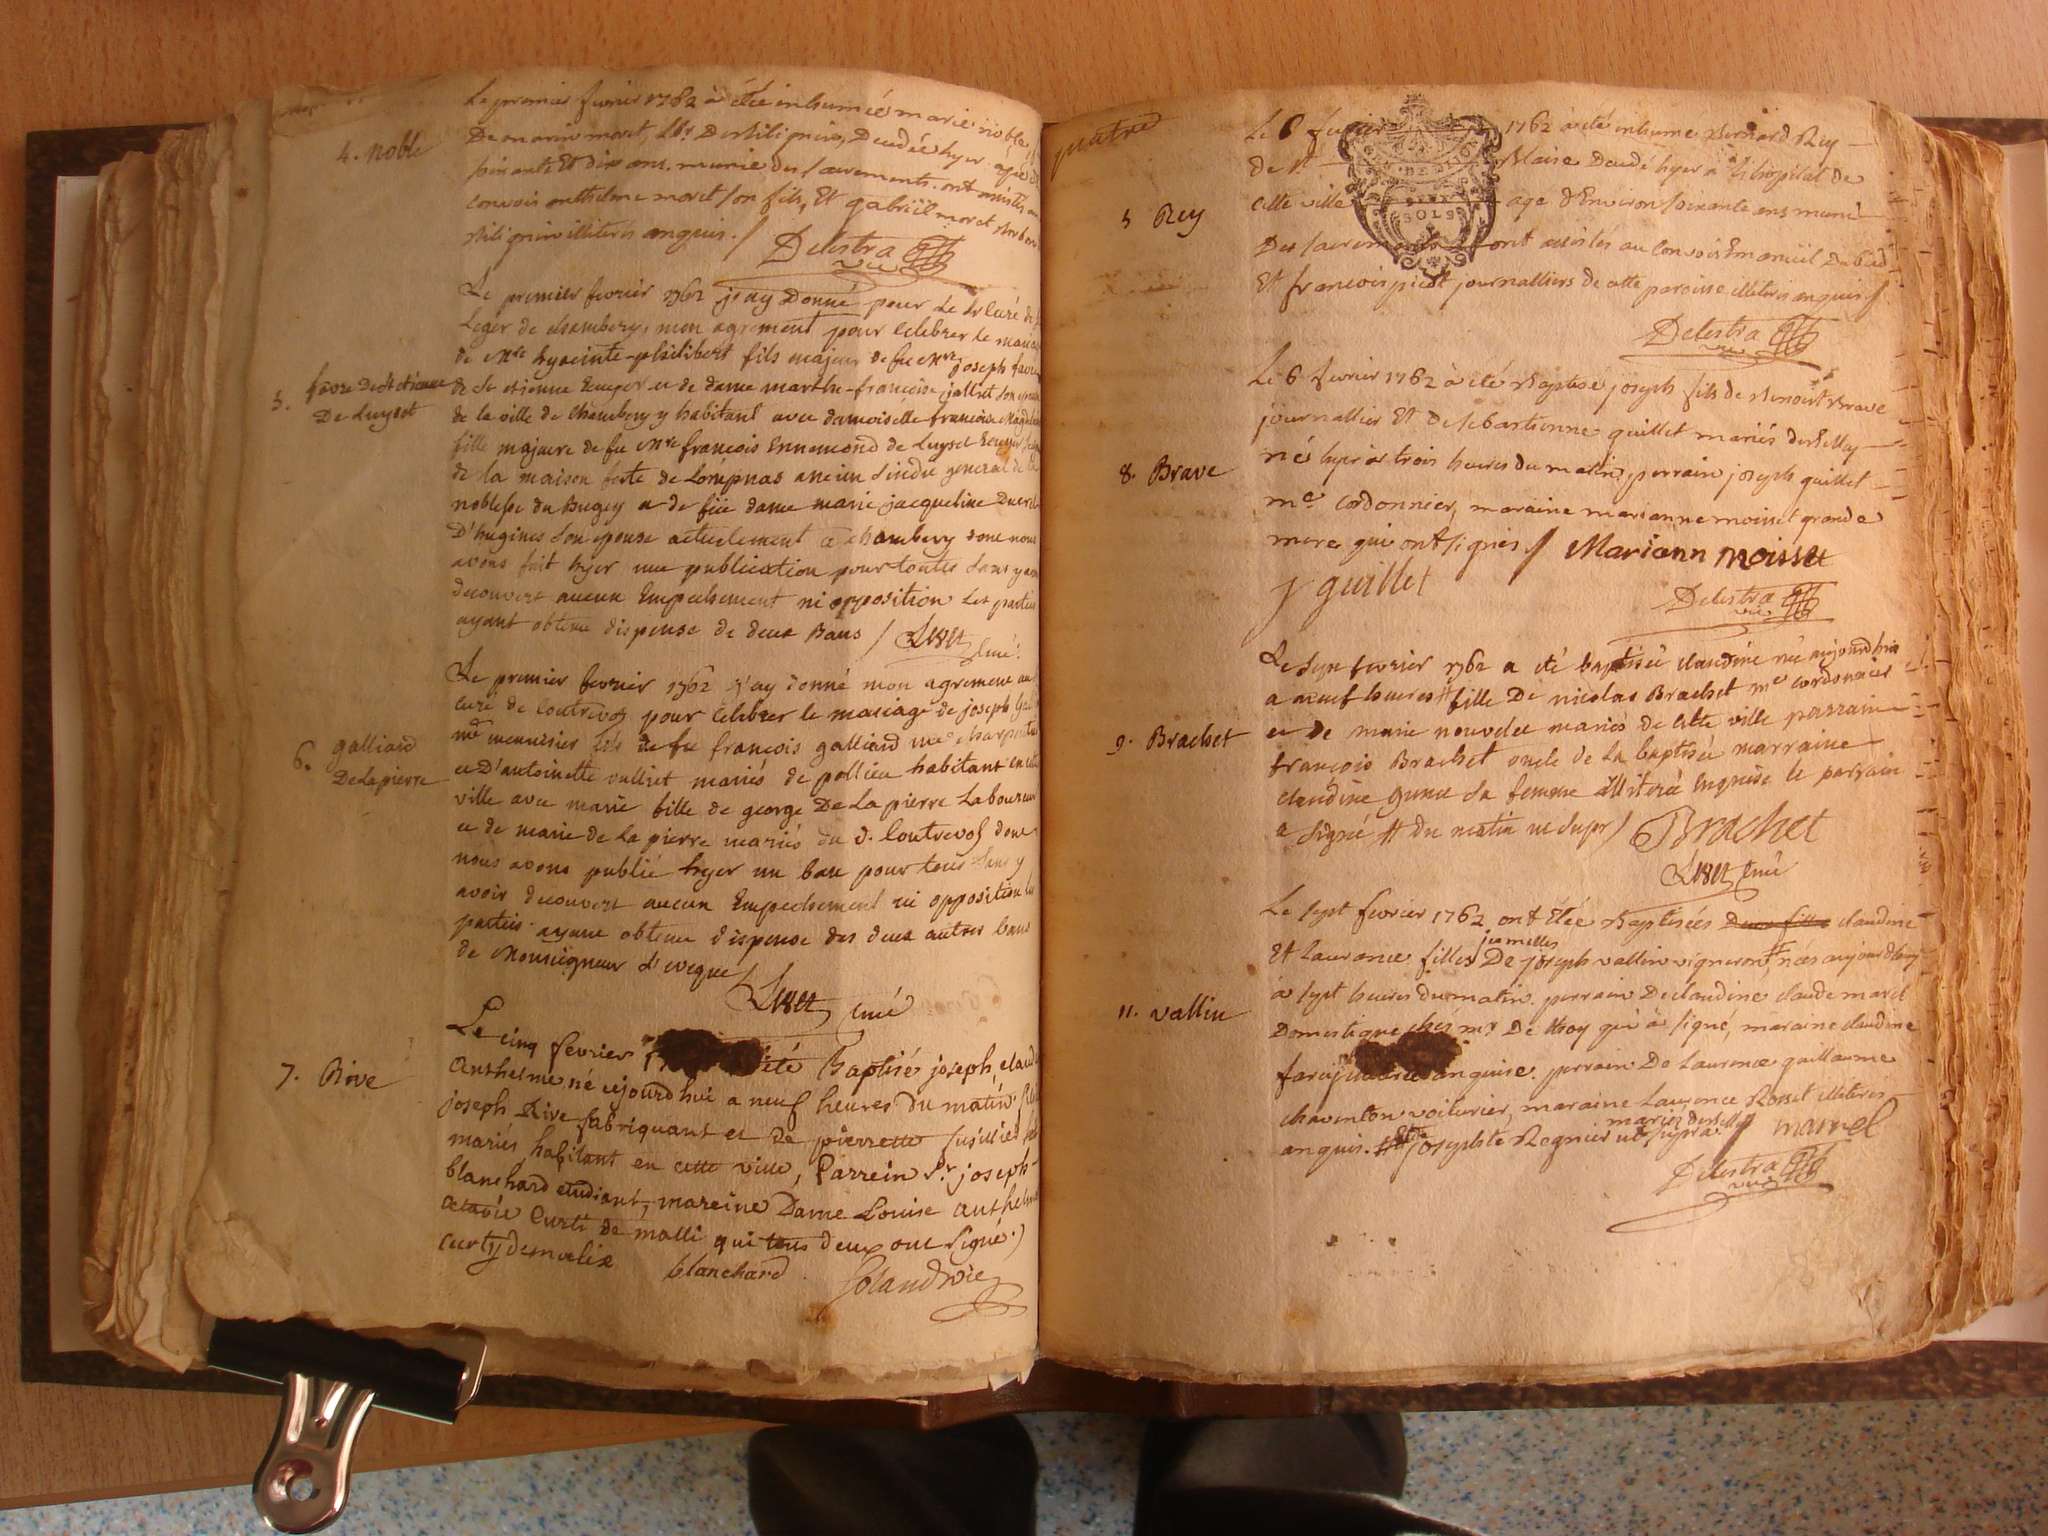 4. noble
Le premier fevrier 1762 à étée inhumée marie noble
De marin moret, Decedée hyer agée de
soixante Et dix ans. munie des sacrements. ont assistés au
convois anthelme moret son fils, Et gabriël moret
illiterés enquis. /
Delestra vic
5. favre De St etienne
De Luyset
Le premier fevrier 1762 j'ay Donné pour Le Sr Curé de St
Leger de chambery, mon agrement pour celebrer le mariage
de Mre hyacinte-philibert fils majeur de feu Mre joseph favre
de St etienne Ecuyer et de dame marthe-françoise jallist son epouse
de la ville de Chambery y habitant avec damoiselle francoise Magdelaine
fille majeure de feu Mre françois Ennemond de Luyset Ecuyer
de la maison forte de Lompnas ancien sindic general de la
noblesse du Bugey et de feüe dame marie jacqueline
D'hugines son epouse actuelement a chambery dont nous
avons fait hyer une publication pour toutes sans y avoir
decouvert aucun Empechement ni opposition Les parties
ayant obtenu dispense de deux Bans /
Curé.
6. galliard
De la pierre
Le premier fevrier 1762 j'ay donné mon agrement au
curé de Contrevoz pour celebrer le mariage de joseph
me menuisier fils de feu françois galliard me charpentier
et D'antoinette vulliet mariés de pollieu habitant en cette
ville avec marie fille de george De La pierre Laboureur
et de marie de La pierre mariés du d. Contrevoz dont
nous avons publié hyer un ban pour tous sans y
avoir decouvert aucun Empechement ni opposition les
parties ayant obtenu dispense des deux autres bans
de Monseigneur L'eveque /
Curé
7. Rive
Le cinq fevrier été Baptisé joseph, claude
Anthelme né cejourd'hui a neuf heures du matin. fils
joseph Rive fabriquant et de pierrette
mariés habitant en cette ville, Parrein Sr. joseph
blanchard etudiant, mareine Dame Louise anthelme
octavie Curti de malli qui tous deux ont signé.)
blanchard
quatre
5 Rey
Le 6 fevrier 1762 à été inhumé Bernard Rey
de St Blaise Decedé hyer à l'hopital de
cette ville agé d'Environ soixante ans muni
Des sacrements ont assistés au convois Emanuël
Et francois picot journalliers de cette paroisse illiterés enquis /
SOLS
Delestra vic
8. Brave
Le 6 fevrier 1762 à été Baptisé joseph fils de Benoist Brave
journallier Et De sebastienne guillet mariés de Belley
né hyer à trois heures du matin, perrain joseph guillet
me cordonnier, maraine marianne moisset grande
mere qui ont signés / Mariann moisset
J guillet
Delestra vic
9. Brachet
Le Sept fevrier 1762 a été baptisée claudine née aujourd'hui
a neuf heures # fille De nicolas Brachet me cordonnier
et de marie nouvelet mariés de cette ville parrain
françois Brachet oncle de La baptisée marraine
claudine sa femme illiterée Enquise le parrain
a signé # du matin ut supr /
Brachet
Curé
11. vallin
Le sept fevrier 1762 ont étée Baptisées Deux filles claudine
Et Laurance filles jumelles De joseph vallin vigneron # nées aujourdhuy
à sept heures du matin. perrain De claudine claude marcel
Domestique chés mr De thoy qui à signé, maraine claudine
enquise. perrain De Laurence guillaume
chaventon voiturier, maraine Laurence Rosset illiterés
enquis. # Et De josephte Regnier mariés de Belley ut supra /
marcel
Delestra vic